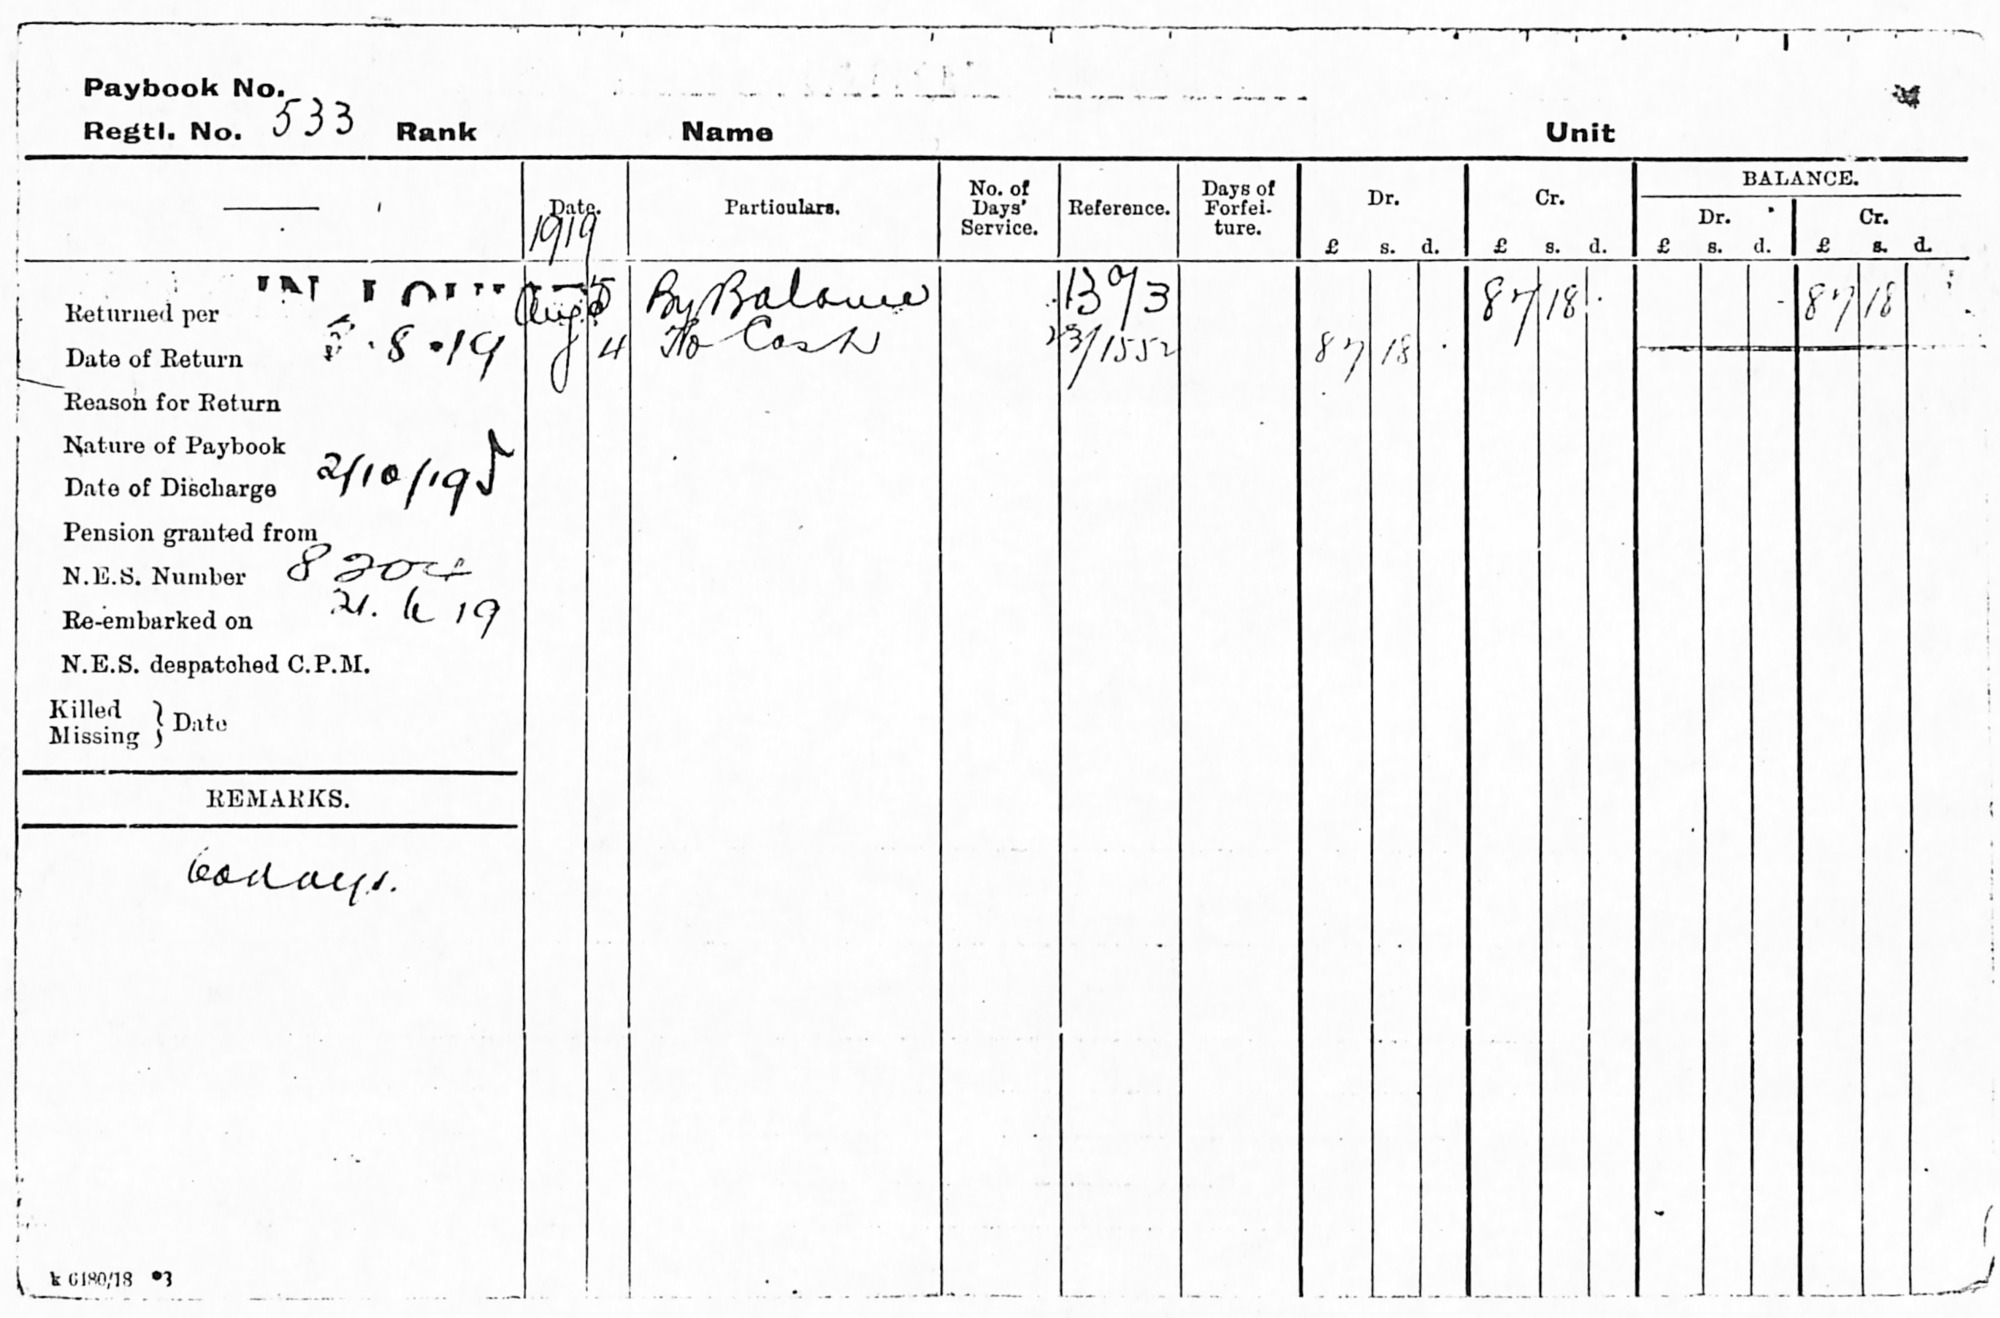 Paybook No.
Regtl. No. 533 Rank Name Unit
Date. Particulars. No. of Days' Service. Reference. Days of Forfei-ture. Dr. Cr. BALANCE.
1919
Dr. Cr.
£ s. d. £ s. d. £ s. d. £ s. d.
Returned per
Aug 5 By Balance 87 18 87 18
Date of Return 8.19
4 To Cash 23/1552 87 18
Reason for Return
Nature of Paybook
Date of Discharge 2/10/19
Pension granted from
N.E.S. Number 8204
Re-embarked on 21. 6 19
N.E.S. despatched C.P.M.
Killed
Missing } Date
REMARKS.
60 days.
k 6180/18 *3